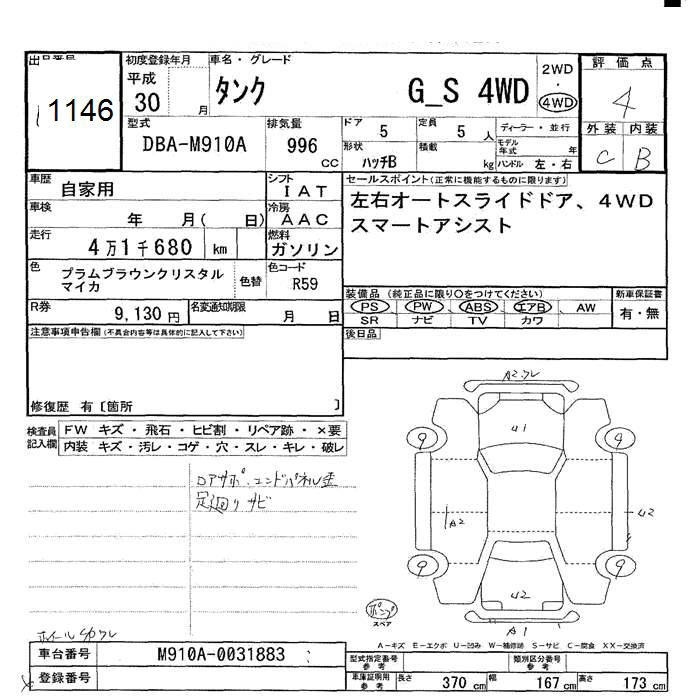 出品番号
1146
初度登録年月
平成
30 月
車名・グレード
タンク G_S 4WD
2WD
・
4WD
評価点
4
型式
DBA-M910A
排気量
996 cc
ドア
5
定員
5 人
ディーラー・並行
形状
ハッチB
積載
kg
モデル年式 年
ハンドル 左・右
外装 内装
C B
車歴
自家用
シフト
IAT
車検
年 月( 日)
冷房
AAC
走行
4万1千680 km
燃料
ガソリン
色
プラムブラウンクリスタル
マイカ
色替
色コード
R59
R券
9,130円
名変通知期限
月 日
セールスポイント(正常に機能するものに限ります)
左右オートスライドドア、4WD
スマートアシスト
装備品 (純正品に限り○をつけてください)
PS、PW、ABS、エアB、AW
SR ナビ TV カワ
新車保証書
有・無
後日品
注意事項申告欄(不具合内容等は具体的に記入して下さい)
修復歴 有〔箇所 〕
検査員
記入欄
FW キズ・飛石・ヒビ割・リペア跡・×要
内装 キズ・汚レ・コゲ・穴・スレ・キレ・破レ
ロアサポ・エンドパネル歪
足廻りサビ
A2
U1
9
4
A2
U2
9
9
U2
A1
スペア
A-キズ E-エクボ U-凹み W-補修跡 S-サビ C-腐食 XX-交換済
車台番号
M910A-0031883
登録番号
型式指定番号
参考
類別区分番号
参考
車庫証明用
参考
長さ 370 cm
幅 167 cm
高さ 173 cm